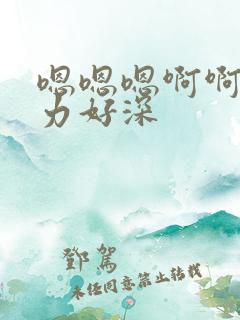 嗯嗯嗯啊啊
力好深
鄧駕
未经同意禁止转载